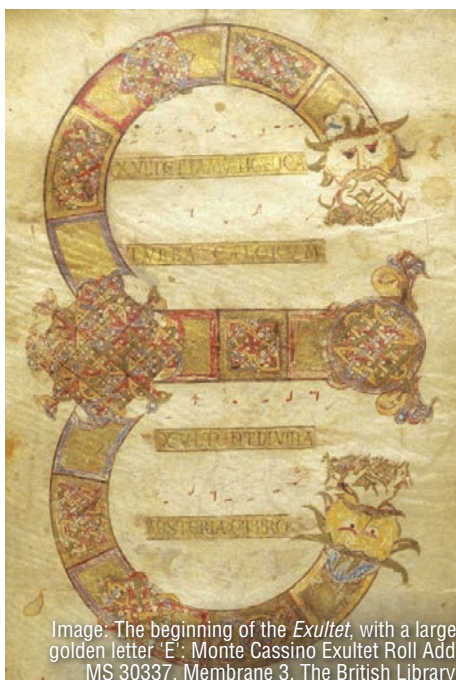 XVLTET IAM ANGELICA
TVRBA CALORVM
XVLTENT DIVINA
MISTERIA ET PRO
Image: The beginning of the Exultet, with a large
golden letter 'E': Monte Cassino Exultet Roll Add
MS 30337, Membrane 3, The British Library